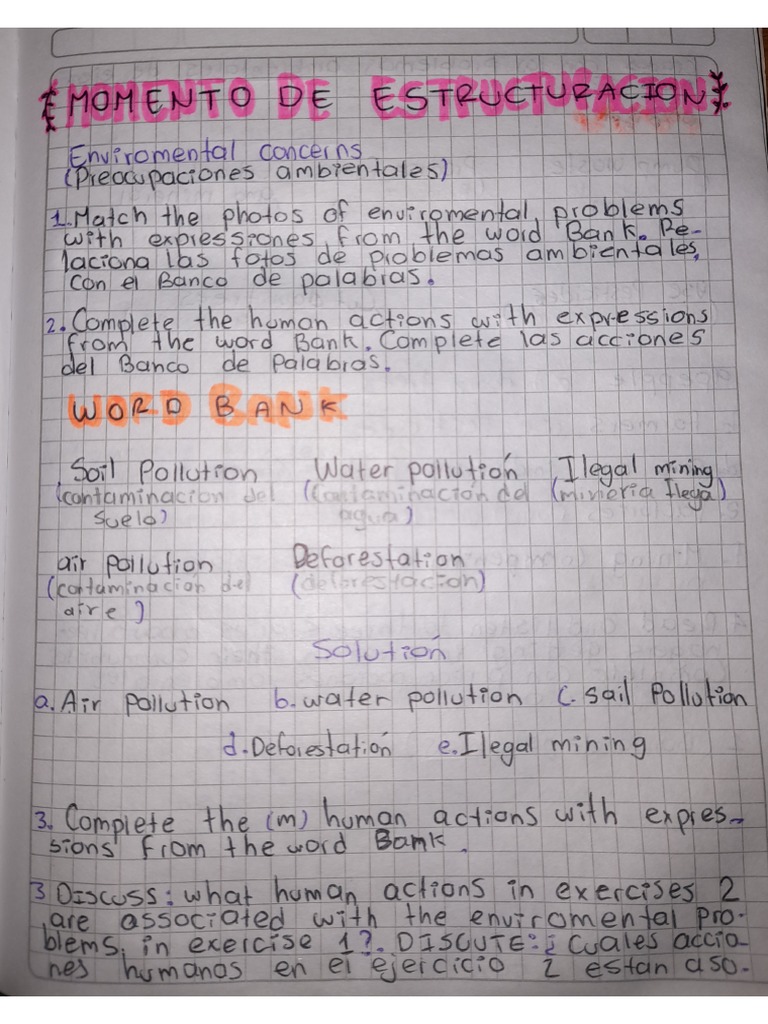 MOMENTO DE ESTRUCTURACION
Enviromental concerns
(Preocupaciones ambientales)
1. Match the photos of enviromental problems
with expressiones from the word Bank. Re-
laciona las fotos de problemas ambientales,
con el Banco de palabras.
2. Complete the human actions with expressions
from the word Bank. Complete las acciones
del Banco de Palabras.
WORD BANK
Soil Pollution Water pollutión Ilegal mining
(contaminacion del (Contaminación del (mivieria Ilega)
suelo) agua)
air pollution Deforestation
(contaminacion del (deforestacion)
aire)
Solutión
a. Air pollution b. water pollution C. sail Pollution
d. Deforestatión e. Ilegal mining
3. Complete the (m) human actions with expres-
sions from the word Bank.
3 Discuss: what human actions in exercises 2
are associated with the enviromental pro-
blems, in exercise 1?. DISCUTE: ¿Cuales accio-
nes humanas en el ejercicio 2 estan aso-